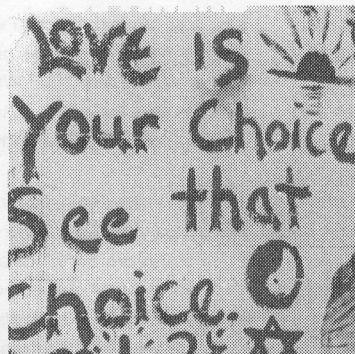 Love is
Your Choice
See that
Choice.